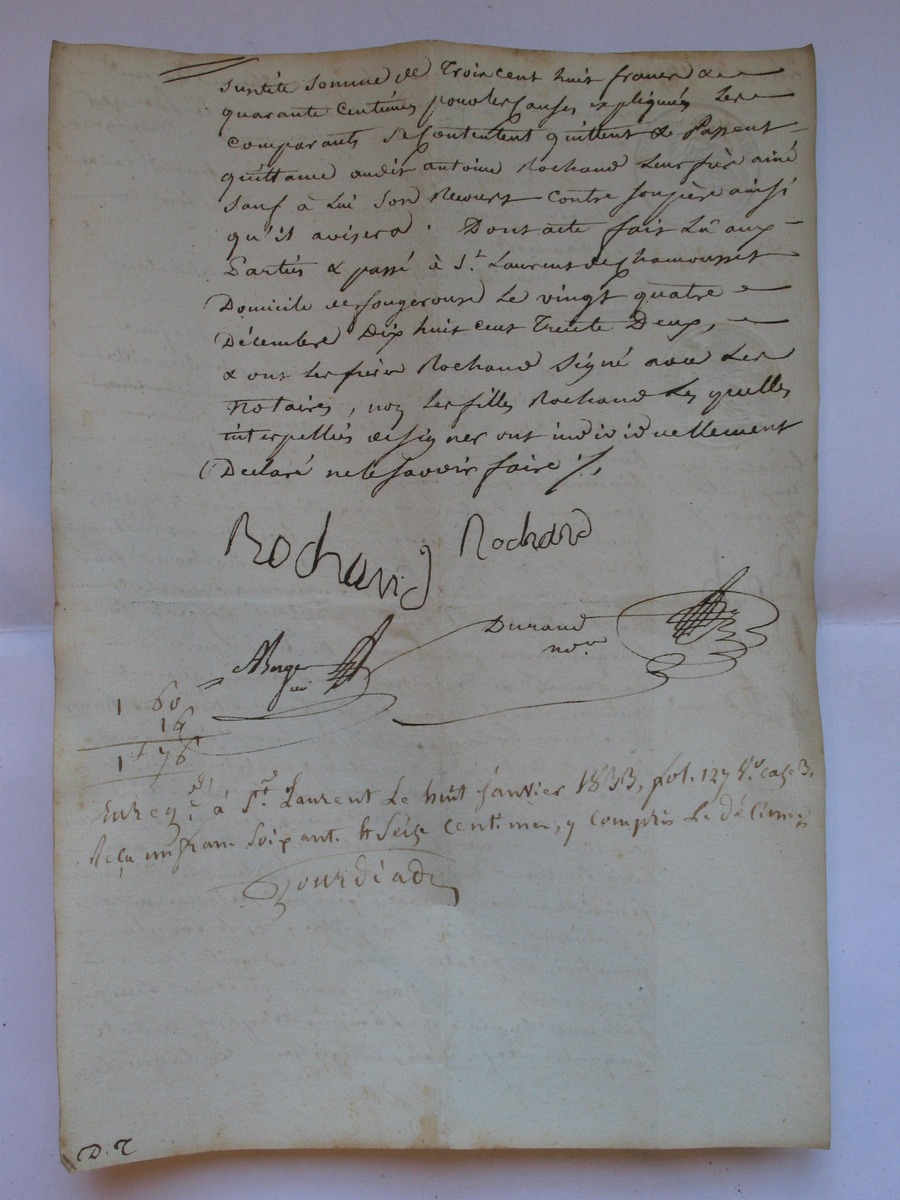 susdite somme de Trois cent huit francs &
quarante centimes pour les causes expliquées Les
comparants se contentent quittent & Passent
quittance audit antoine Rochand Leur frère ainé
sauf à Lui son Recours contre son père ainsi
qu'il avisera. Dont acte fait Lu aux
Parties & passé à St. Laurent de Chamousset
Domicile de fougerouse Le vingt quatre
Décembre Dix huit cent Trente Deux,
& ont Les frères Rochand Signé avec Les
Notaires, non Les filles Rochand Les quelles
interpellées de signer ont individuellement
Declaré ne le savoir faire ./.
Rochand Rochand
Durand
nore
Berger
1 60
16
1 f 76
Enregé. à St. Laurent Le huit janvier 1833, fol. 127 Vo. case 3.
Reçu un franc Soixant. & Seize centimes, y compris Le décime
D. T